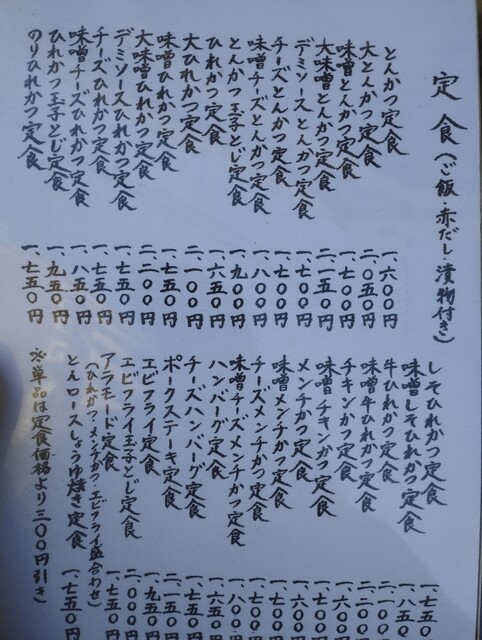 定食(ご飯・赤だし・漬物付き)
とんかつ定食 一、六〇〇円
大とんかつ定食 二、〇五〇円
味噌とんかつ定食 一、七〇〇円
大味噌とんかつ定食 二、一五〇円
デミソースとんかつ定食 一、七〇〇円
チーズとんかつ定食 一、七〇〇円
味噌チーズとんかつ定食 一、八〇〇円
とんかつ玉子とじ定食 一、九〇〇円
ひれかつ定食 一、六五〇円
大ひれかつ定食 二、一〇〇円
味噌ひれかつ定食 一、七五〇円
大味噌ひれかつ定食 二、二〇〇円
デミソースひれかつ定食 一、七五〇円
チーズひれかつ定食 一、七五〇円
味噌チーズひれかつ定食 一、八五〇円
ひれかつ玉子とじ定食 一、九五〇円
のりひれかつ定食 一、七五〇円
しそひれかつ定食 一、七五
味噌しそひれかつ定食 一、八五
牛ひれかつ定食 二、一〇
味噌牛ひれかつ定食 二、二〇
チキンかつ定食 一、六〇〇
味噌チキンかつ定食 一、七〇〇
メンチかつ定食 一、六〇〇
味噌メンチかつ定食 一、七〇〇
チーズメンチかつ定食 一、七〇〇
味噌チーズメンチかつ定食 一、八〇〇
ハンバーグ定食 一、六五〇
チーズハンバーグ定食 一、七五〇
ポークステーキ定食 二、一五〇
エビフライ定食 一、九五〇
エビフライ玉子とじ定食
アラモード定食 一、七五〇
(ひれかつ・メンチかつ・エビフライ盛合わせ)
とんロースしょうゆ焼き定食 一、七五〇円
※単品は定食価格より三〇〇円引き